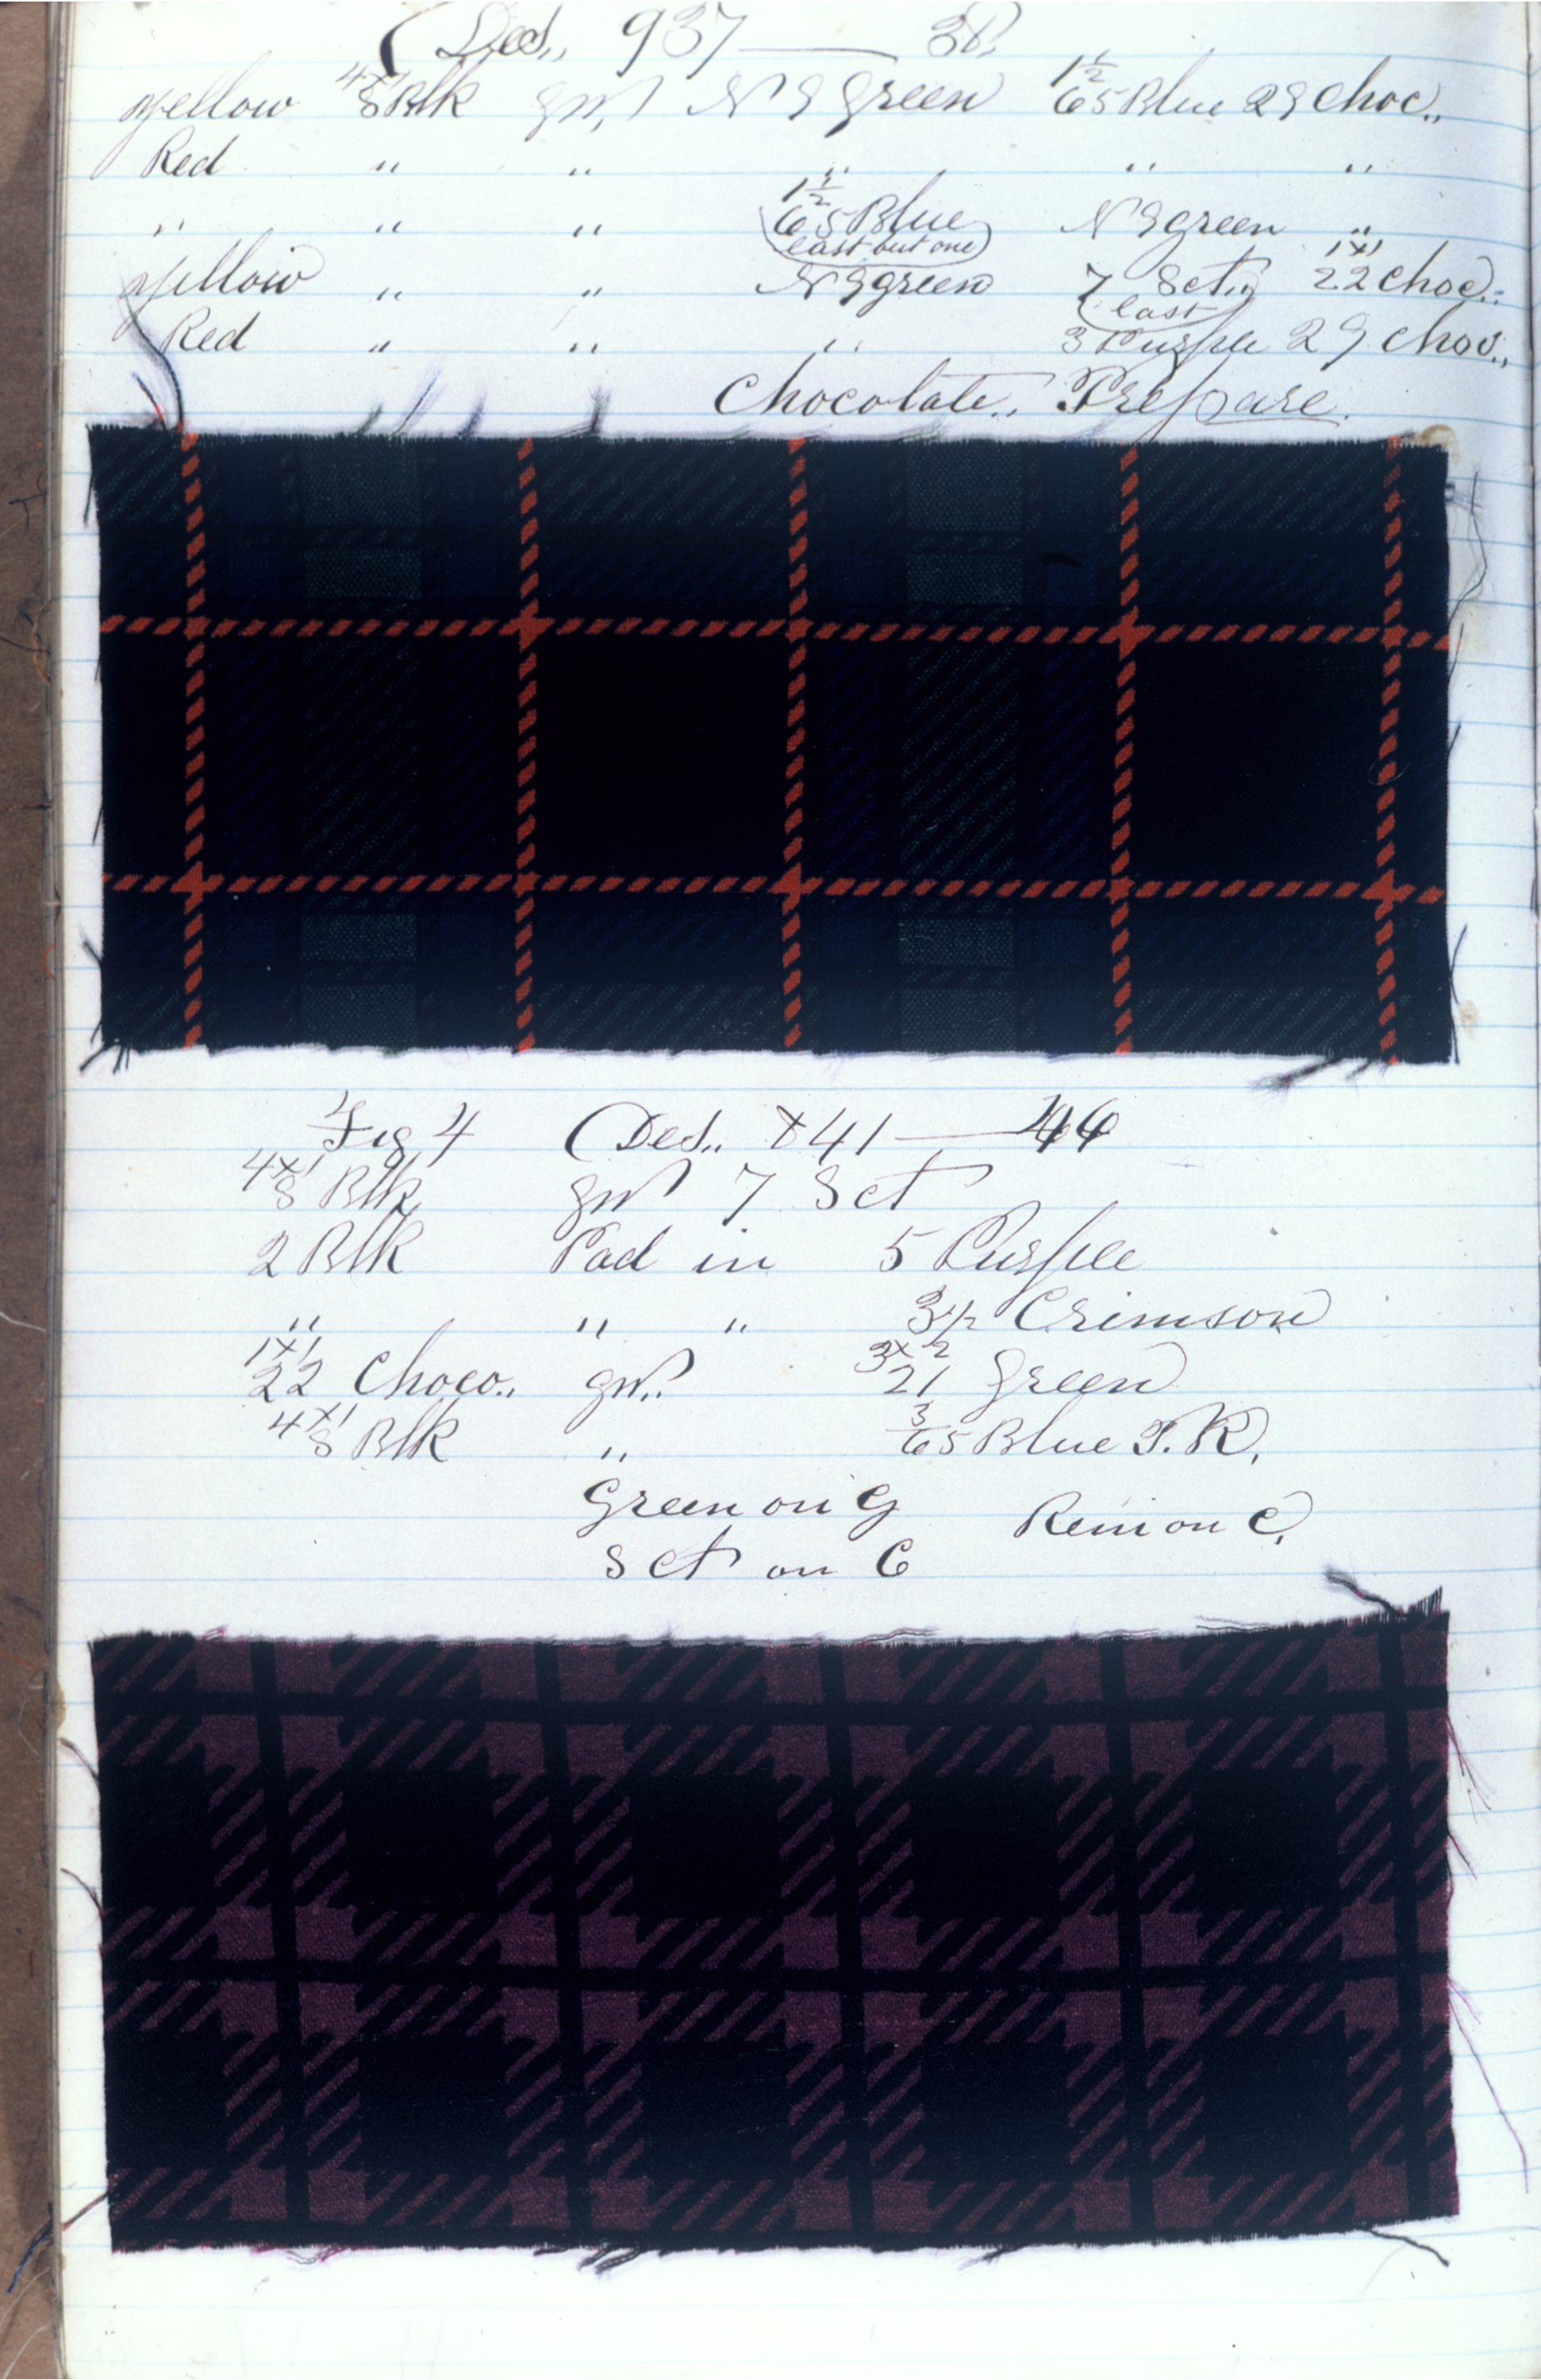 Des,, 937 — 3P.
yellow 4x1 8 Blk gn, N 9 green 1½ 65 Blue 29 choc,,
Red ,, ,, ,, ,, ,,
,, ,, ,, 1½ 65 Blue N 9 green ,,
(last but one) 1x1
yellow ,, ,, N 9 green 7 Sct,, 22 choc,,
(last)
Red ,, ,, ,, 3 Purple 29 choc,,
Chocolate,, Prepare.
Fig 4 Des,, 841 — 44
4x1 8 Blk gn 7 Sct
2 Blk Pad in 5 Purple
,, ,, ,, 3/2 Crimson
1x1 22 Choco,, gn,, 3x2 21 Green
4x1 8 Blk ,, 3/65 Blue T.R,
Green on G Rem on C,
Sct on C